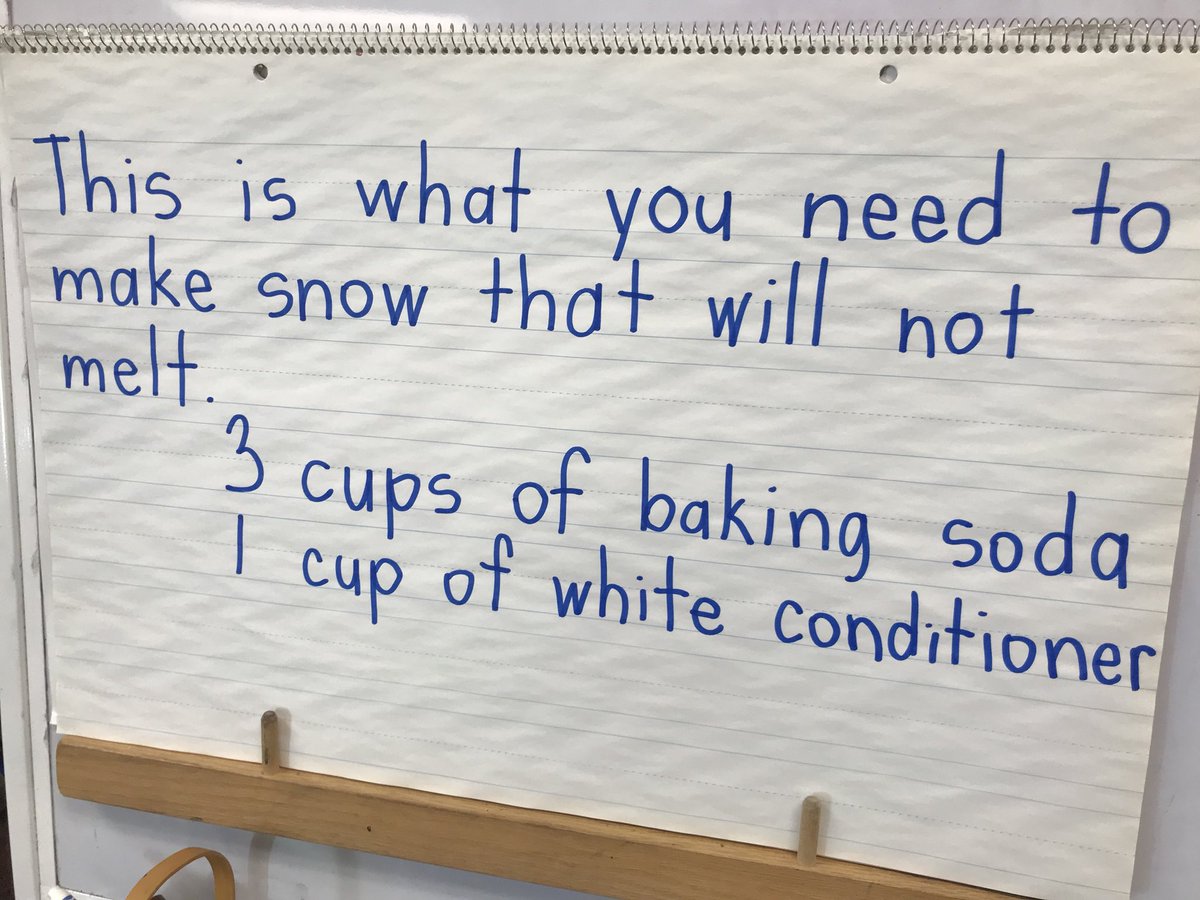 This is what you need to
make snow that will not
melt.
3 cups of baking soda
1 cup of white conditioner